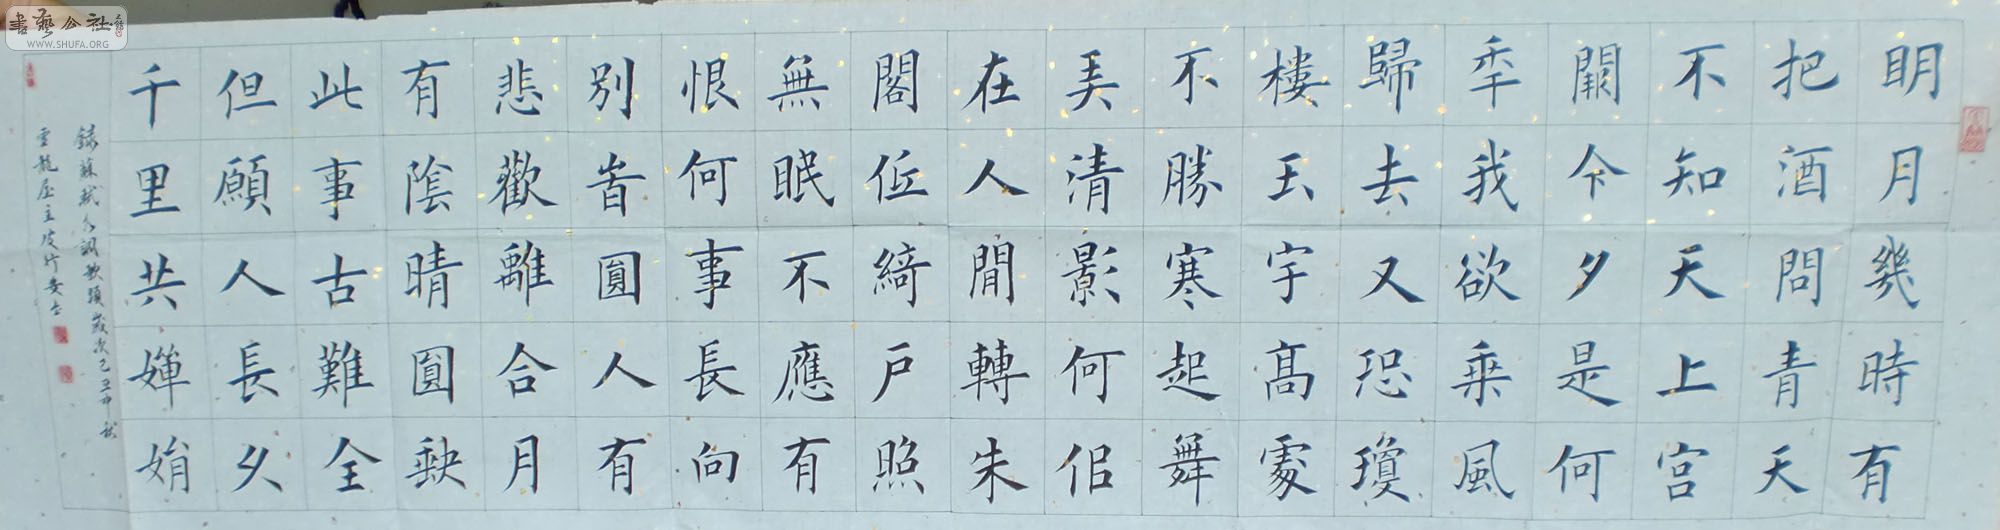 書藝公社
WWW.SHUFA.ORG
明月幾時有
把酒問青天
不知天上宮
闕今夕是何
秊我欲乘風
歸去又恐瓊
樓玉宇高處
不勝寒起舞
弄清影何佀
在人間轉朱
閣低綺戶照
無眠不應有
恨何事長向
別旹圓人有
悲歡離合月
有陰晴圓缺
此事古難全
但願人長久
千里共嬋娟
錄蘇軾水調歌頭歲次己丑中秋
雲龍屋主皮竹安